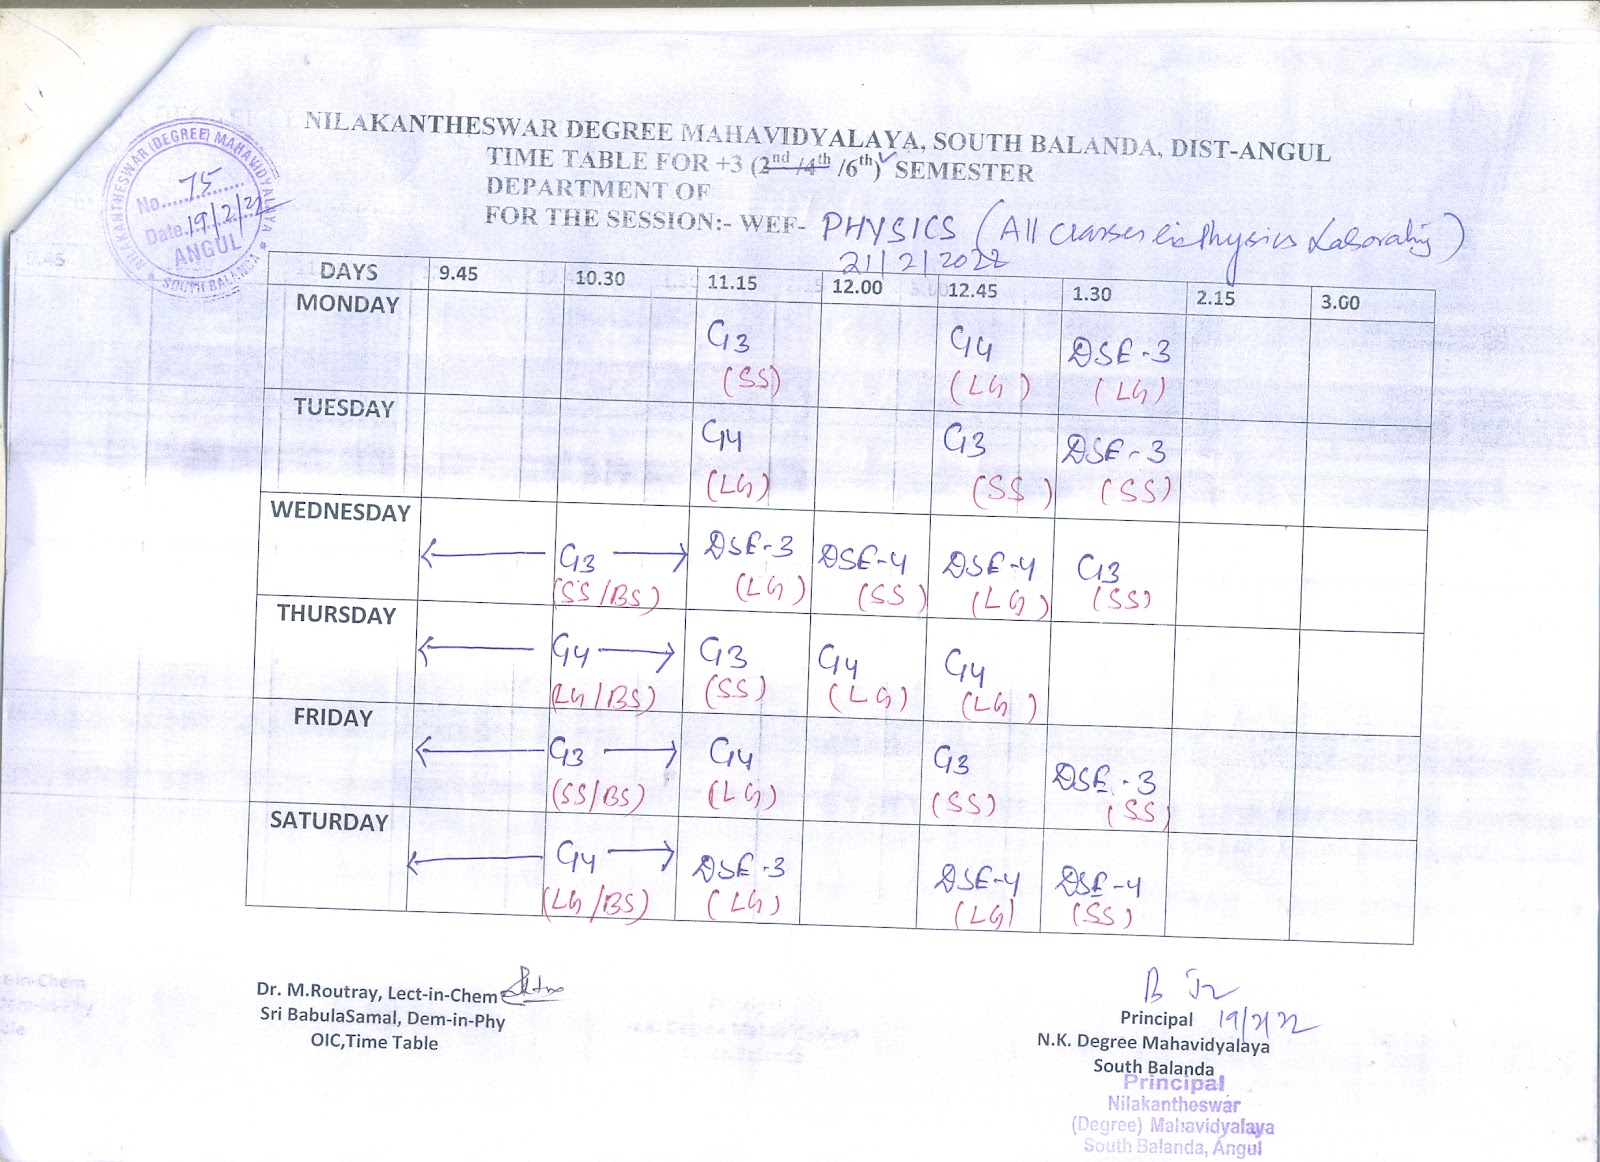 NILAKANTHESWAR DEGREE MAHAVIDYALAYA, SOUTH BALANDA, DIST-ANGUL
TIME TABLE FOR +3 (2nd /4th /6th) SEMESTER
DEPARTMENT OF
FOR THE SESSION:- WEF- PHYSICS (All Classes in Physics Laboratory)
21/2/2022
NILAKANTHESWAR (DEGREE) MAHAVIDYALAYA
No. 75
Date. 19/2/22
ANGUL
SOUTH BALANDA
DAYS 9.45 10.30 11.15 12.00 12.45 1.30 2.15 3.00
MONDAY
G3 G4 DSE-3
(SS) (LG) (LG)
TUESDAY
G4 G3 DSE-3
(LG) (SS) (SS)
WEDNESDAY
← G3 → DSE-3 DSE-4 DSE-4 G3
(SS/BS) (LG) (SS) (LG) (SS)
THURSDAY
← G4 → G3 G4 G4
(LG/BS) (SS) (LG) (LG)
FRIDAY
← G3 → G4 G3 DSE-3
(SS/BS) (LG) (SS) (SS)
SATURDAY
← G4 → DSE-3 DSE-4 DSE-4
(LG/BS) (LG) (LG) (SS)
Dr. M.Routray, Lect-in-Chem
Sri BabulaSamal, Dem-in-Phy
OIC,Time Table
Principal 19/2/22
N.K. Degree Mahavidyalaya
South Balanda
Principal
Nilakantheswar
(Degree) Mahavidyalaya
South Balanda, Angul